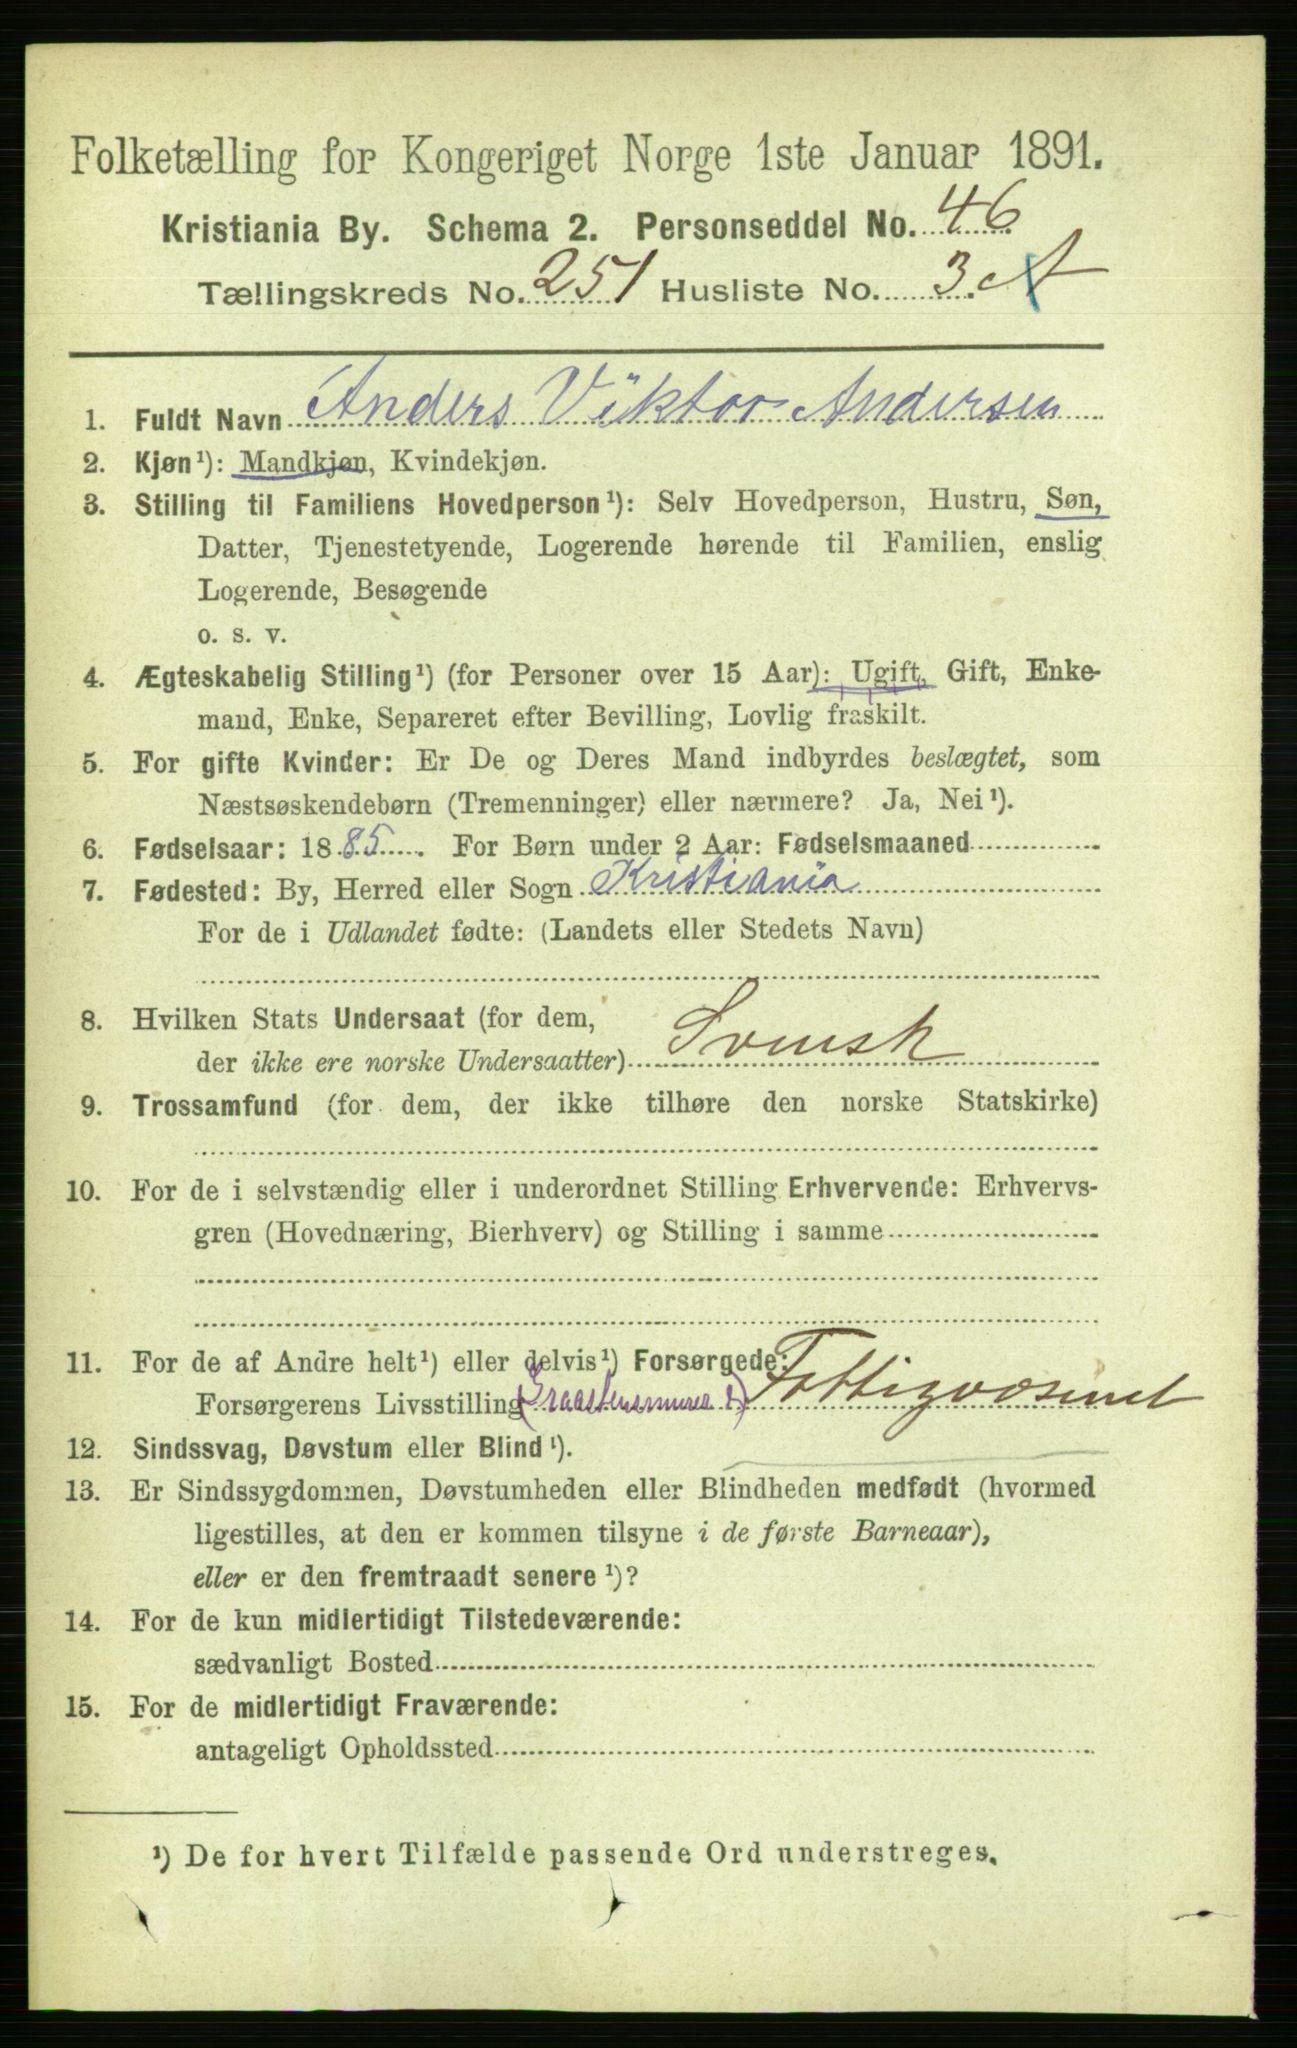 Folketælling for Kongeriget Norge 1ste Januar 1891.
Kristiania By. Schema 2. Personseddel No. 46
Tællingskreds No. 251 Husliste No. 3. A
1. Fuldt Navn Anders Viktor Andersen
2. Kjøn¹): Mandkjøn, Kvindekjøn.
3. Stilling til Familiens Hovedperson¹): Selv Hovedperson, Hustru, Søn,
Datter, Tjenestetyende, Logerende hørende til Familien, enslig
Logerende, Besøgende
o. s. v.
4. Ægteskabelig Stilling¹) (for Personer over 15 Aar): Ugift, Gift, Enke-
mand, Enke, Separeret efter Bevilling, Lovlig fraskilt.
5. For gifte Kvinder: Er De og Deres Mand indbyrdes beslægtet, som
Næstsøskendebørn (Tremenninger) eller nærmere? Ja, Nei¹).
6. Fødselsaar: 1885. For Børn under 2 Aar: Fødselsmaaned
7. Fødested: By, Herred eller Sogn Kristiania
For de i Udlandet fødte: (Landets eller Stedets Navn)
8. Hvilken Stats Undersaat (for dem,
der ikke ere norske Undersaatter) Svensk
9. Trossamfund (for dem, der ikke tilhøre den norske Statskirke)
10. For de i selvstændig eller i underordnet Stilling Erhvervende: Erhvervs-
gren (Hovednæring, Bierhverv) og Stilling i samme
11. For de af Andre helt¹) eller delvis¹) Forsørgede:
Forsørgerens Livsstilling (Graastensmurer) Fattigvæsenet
12. Sindssvag, Døvstum eller Blind¹).
13. Er Sindssygdommen, Døvstumheden eller Blindheden medfødt (hvormed
ligestilles, at den er kommen tilsyne i de første Barneaar),
eller er den fremtraadt senere¹)?
14. For de kun midlertidigt Tilstedeværende:
sædvanligt Bosted
15. For de midlertidigt Fraværende:
antageligt Opholdssted
¹) De for hvert Tilfælde passende Ord understreges.